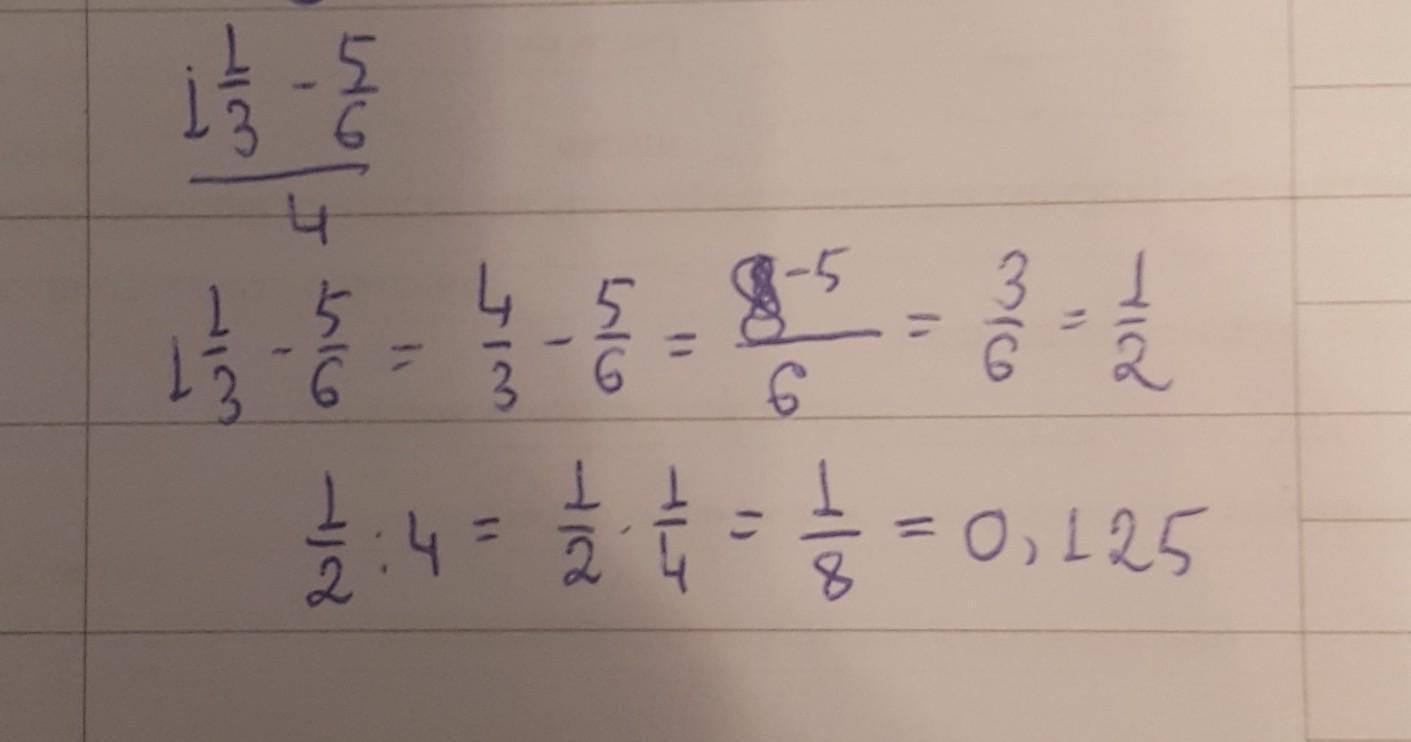 (1 1/3 - 5/6) / 4
1 1/3 - 5/6 = 4/3 - 5/6 = (8-5)/6 = 3/6 = 1/2
1/2 : 4 = 1/2 · 1/4 = 1/8 = 0,125